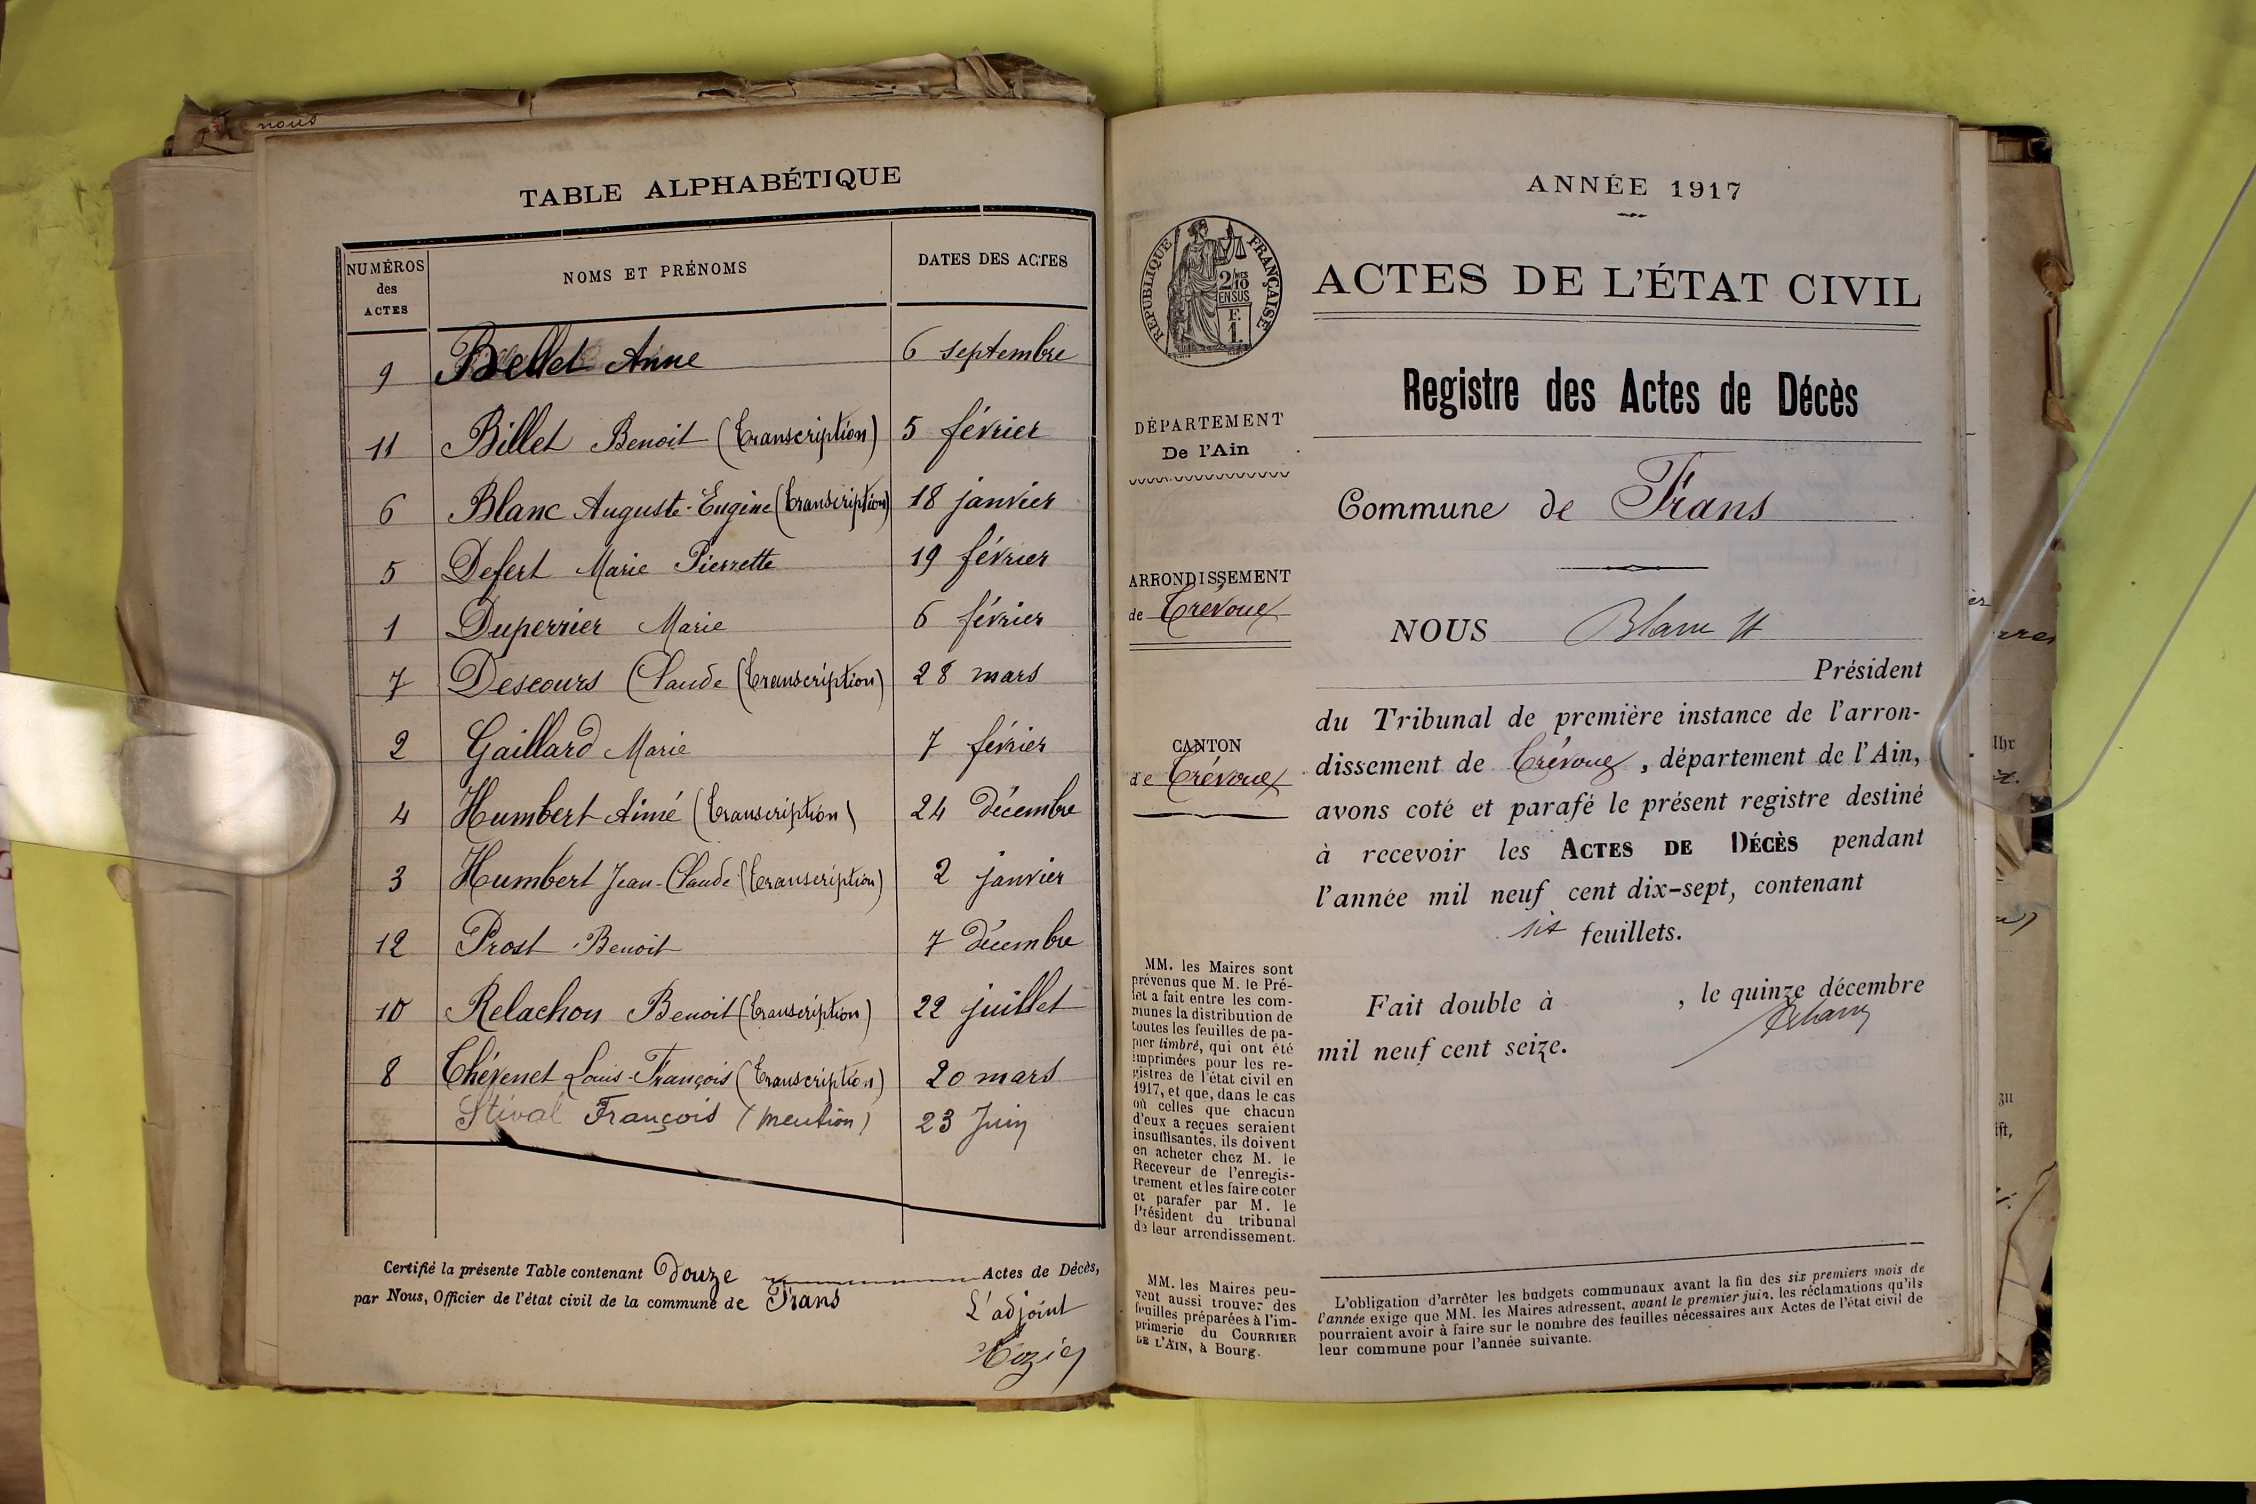 nous
TABLE ALPHABÉTIQUE
NUMÉROS des ACTES
NOMS ET PRÉNOMS
DATES DES ACTES
9 Bellet Anne 6 septembre
11 Billet Benoit (Transcription) 5 février
6 Blanc Auguste-Eugène (Transcription) 18 janvier
5 Defert Marie Pierrette 19 février
1 Duperrier Marie 6 février
7 Descours Claude (Transcription) 28 mars
2 Gaillard Marie 7 février
4 Humbert Aimé (Transcription) 24 décembre
3 Humbert Jean-Claude (Transcription) 2 janvier
12 Prost Benoit 7 décembre
10 Relachon Benoit (Transcription) 22 juillet
8 Thévenet Louis-François (Transcription) 20 mars
Stival François (mention) 23 Juin
Certifié la présente Table contenant Douze Actes de Décès,
par Nous, Officier de l'état civil de la commune de Frans
L'adjoint
RÉPUBLIQUE FRANÇAISE
2/10 EN SUS
F. 1.
DÉPARTEMENT
De l'Ain
ARRONDISSEMENT
de Trévoux
CANTON
de Trévoux
MM. les Maires sont
prévenus que M. le Pré-
fet a fait entre les com-
munes la distribution de
toutes les feuilles de pa-
pier timbré, qui ont été
imprimées pour les re-
gistres de l'état civil en
1917, et que, dans le cas
où celles que chacun
d'eux a reçues seraient
insuffisantes, ils doivent
en acheter chez M. le
Receveur de l'enregis-
trement et les faire coter
et parafer par M. le
Président du tribunal
de leur arrondissement.
MM. les Maires peu-
vent aussi trouver des
feuilles préparées à l'im-
primerie du COURRIER
DE L'AIN, à Bourg.
ANNÉE 1917
ACTES DE L'ÉTAT CIVIL
Registre des Actes de Décès
Commune de Frans
NOUS Blanc
Président
du Tribunal de première instance de l'arron-
dissement de Trévoux, département de l'Ain,
avons coté et parafé le présent registre destiné
à recevoir les ACTES DE DÉCÈS pendant
l'année mil neuf cent dix-sept, contenant
six feuillets.
Fait double à , le quinze décembre
mil neuf cent seize.
L'obligation d'arrêter les budgets communaux avant la fin des six premiers mois de
l'année exige que MM. les Maires adressent, avant le premier juin, les réclamations qu'ils
pourraient avoir à faire sur le nombre des feuilles nécessaires aux Actes de l'état civil de
leur commune pour l'année suivante.